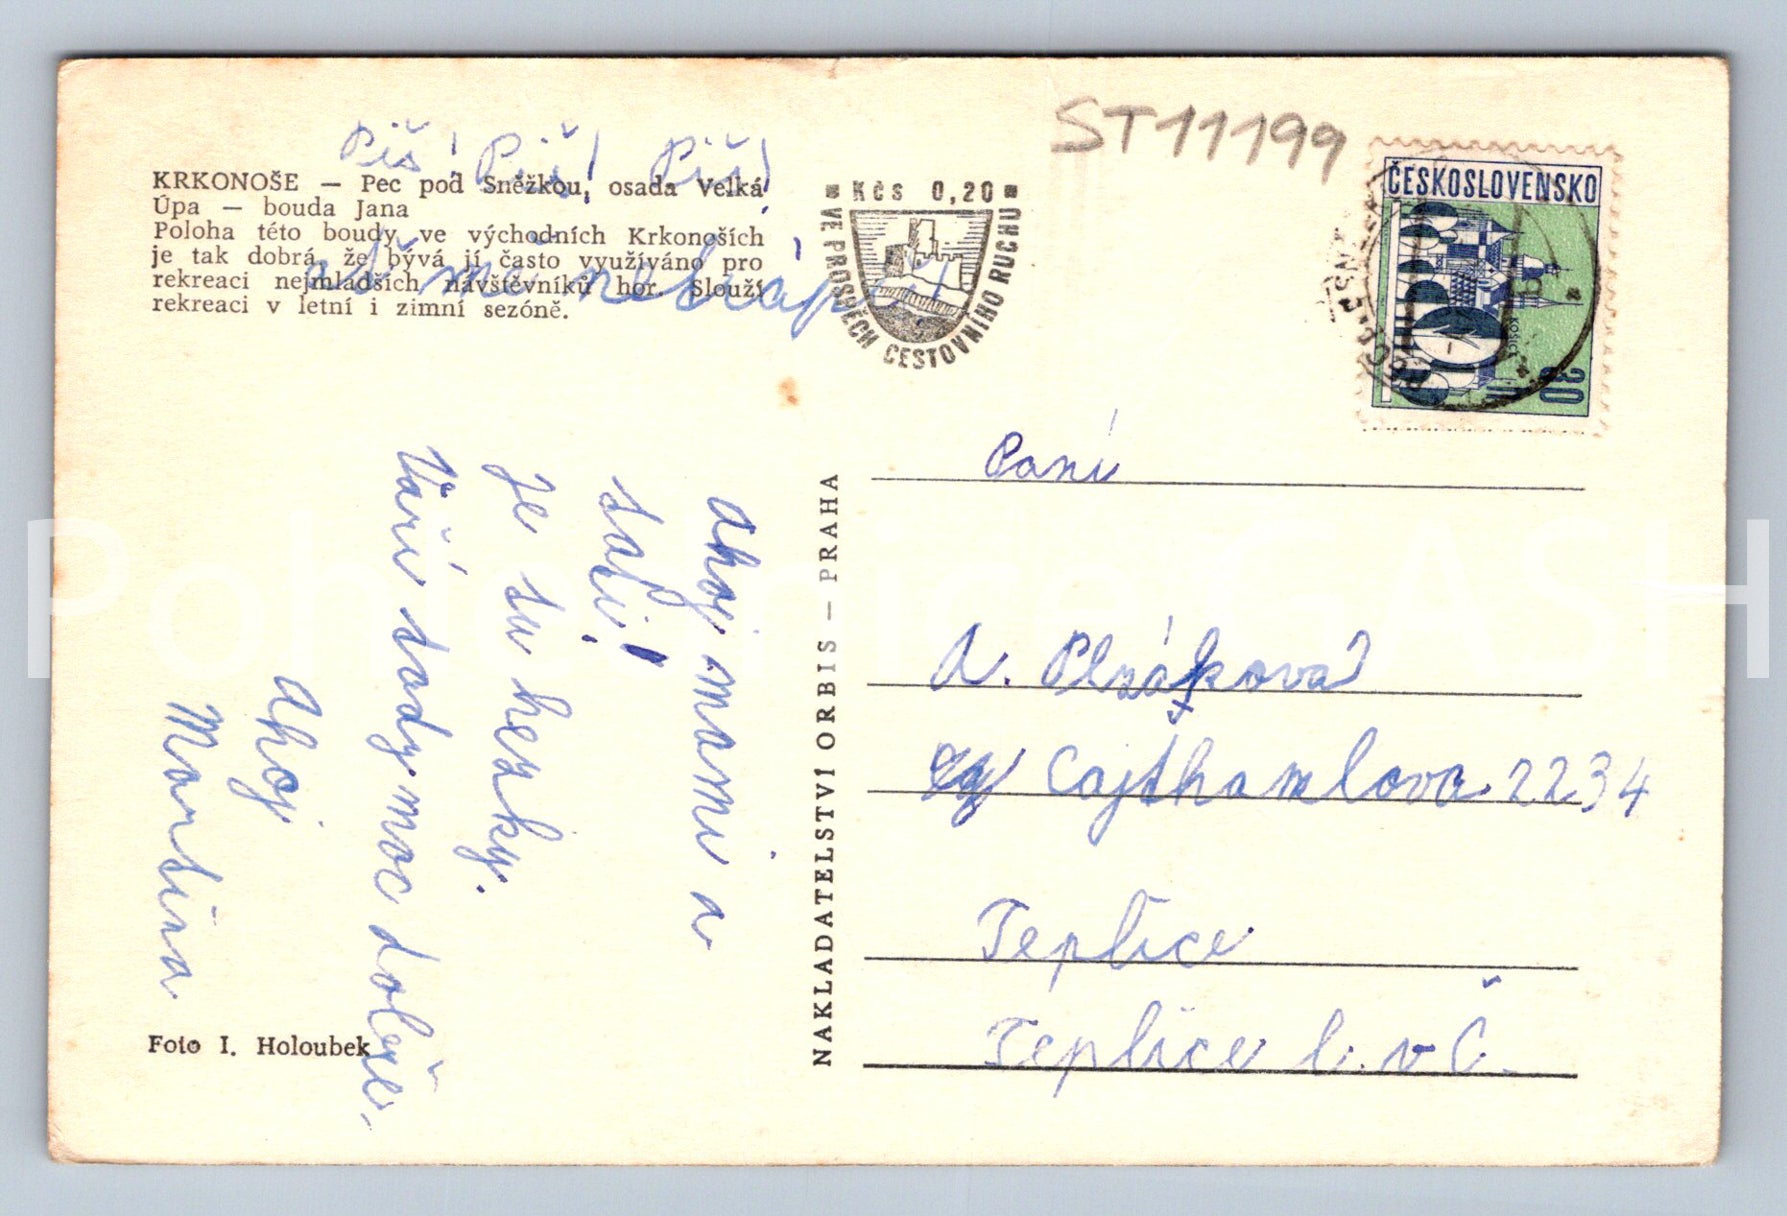 ST11199
Piš! Piš! Piš!
KRKONOŠE — Pec pod Sněžkou, osada Velká
Úpa — bouda Jana
Poloha této boudy ve východních Krkonoších
je tak dobrá, že bývá jí často využíváno pro
rekreaci nejmladších návštěvníků hor. Slouží
rekreaci v letní i zimní sezóně.
ať mě netrápí
Kčs 0,20
VE PROSPĚCH CESTOVNÍHO RUCHU
ČESKOSLOVENSKO
KOŠICE
30
Ahoj mami a
tati!
Je tu hezky.
Vaří tady moc dobře.
Ahoj
Martina
Foto I. Holoubek
NAKLADATELSTVÍ ORBIS — PRAHA
Paní
A. Plzáková
Cajthamlova 2234
Teplice
Teplice l. v Č.
Pohlednice GASH